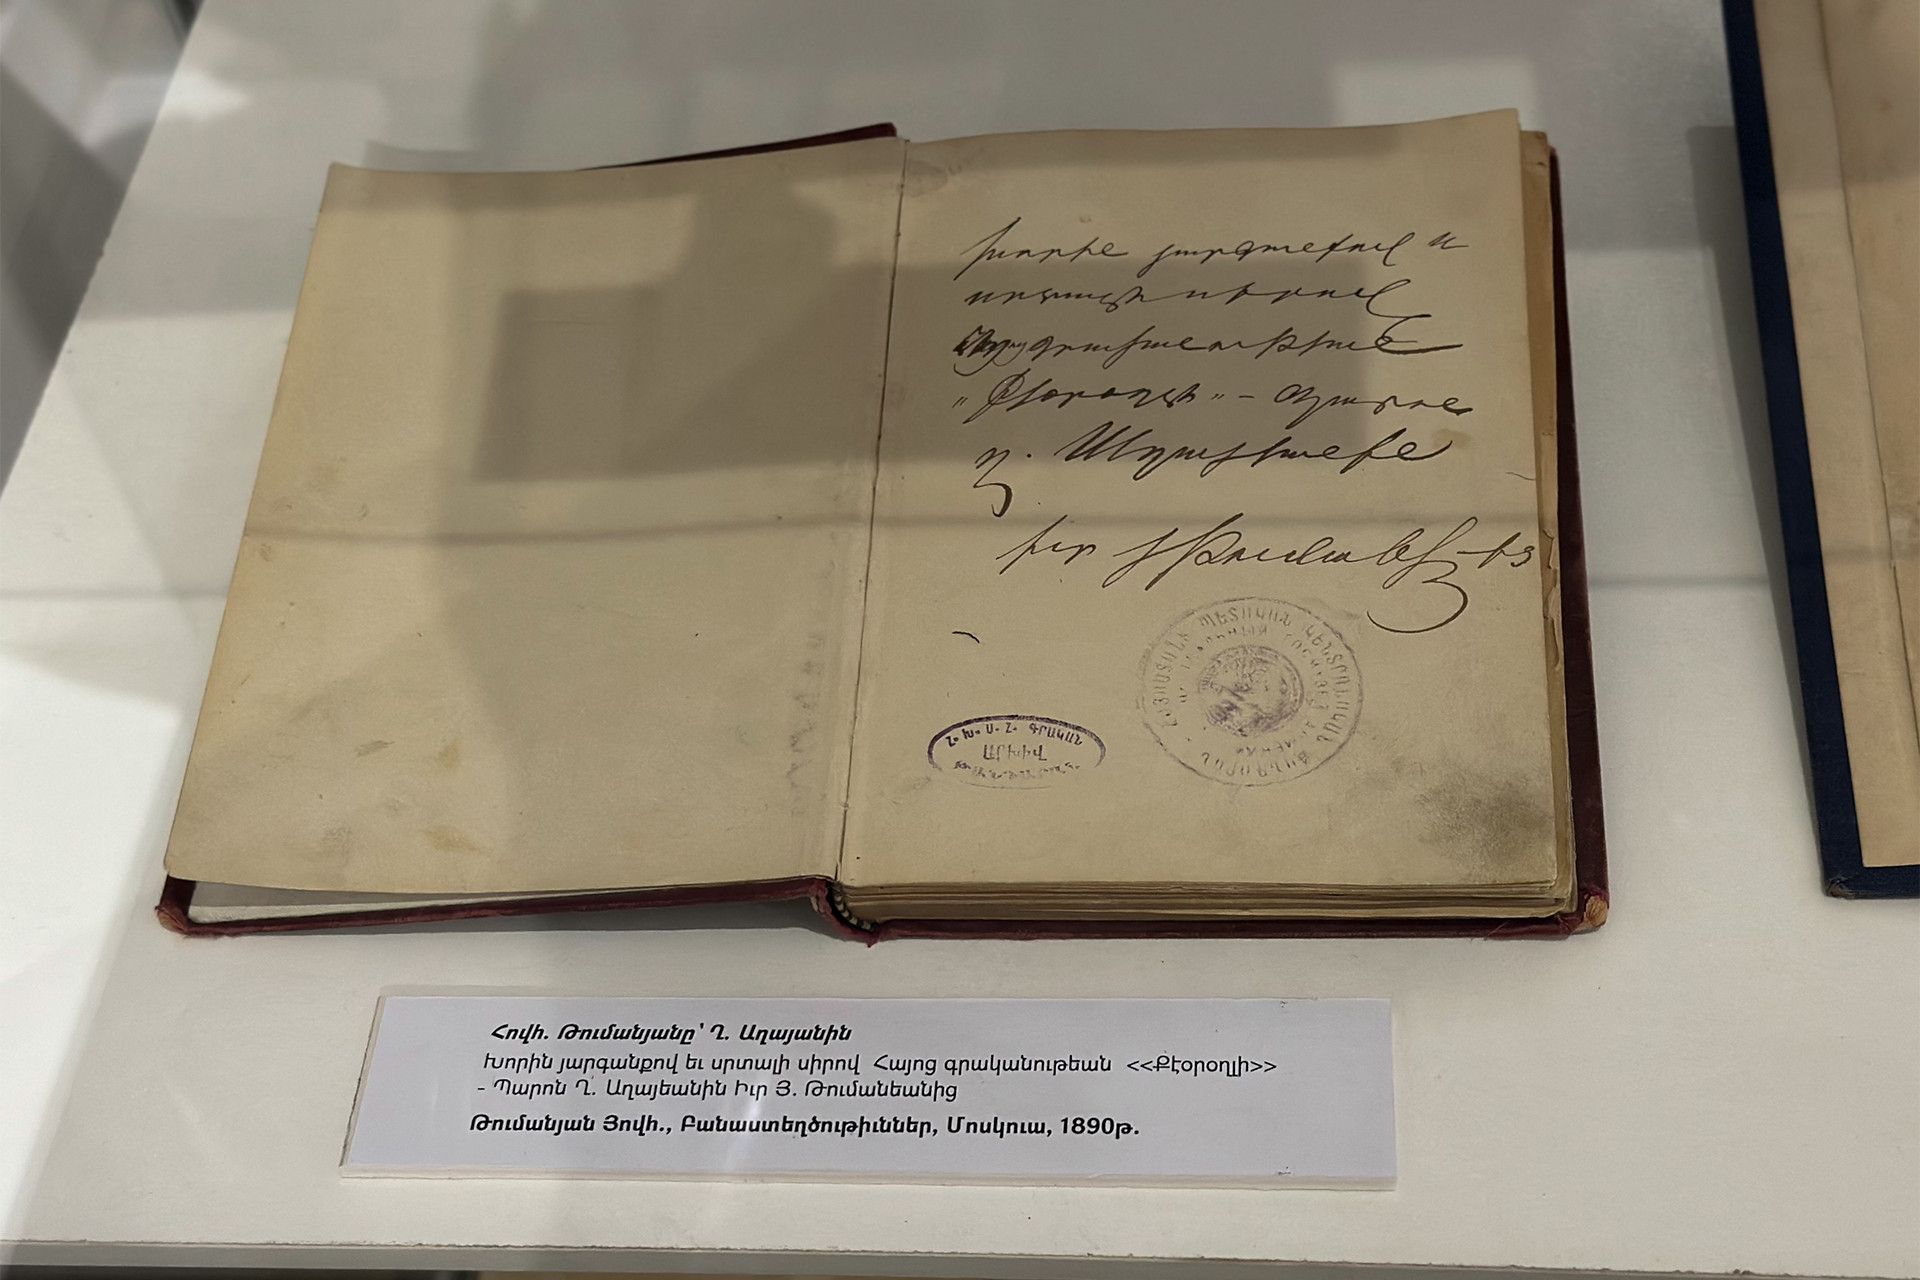 Խորին յարգանքով և
սրտալի սիրով
Հայոց գրականութեան
„Քէօրօղլի" – Պարոն
Ղ. Աղայեանին
Իւր Յ Թումանեան-ից
ՀԱՅԱՍՏԱՆԻ ՊԵՏԱԿԱՆ ԿԵՆՏՐՈՆԱԿԱՆ
Հ. Խ. Ս. Հ. ԳՐԱԿԱՆ
ԱՐԽԻՎ
Հովհ. Թումանյանը՝ Ղ. Աղայանին
Խորին յարգանքով եւ սրտալի սիրով Հայոց գրականութեան <<Քէօրօղլի>>
- Պարոն Ղ. Աղայեանին Իւր Յ. Թումանեանից
Թումանյան Յովհ., Բանաստեղծութիւններ, Մոսկուա, 1890թ.